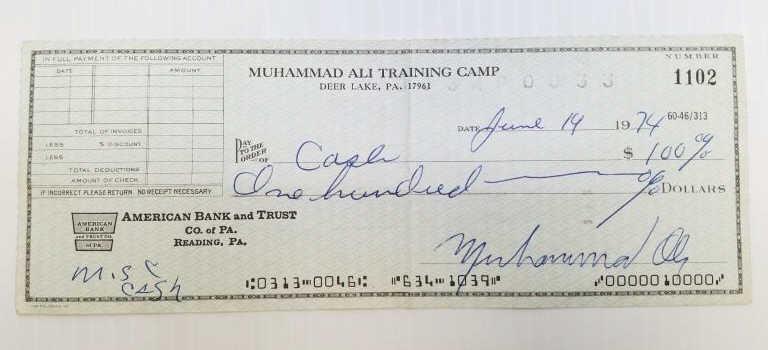 IN FULL PAYMENT OF THE FOLLOWING ACCOUNT
DATE AMOUNT
TOTAL OF INVOICES
LESS % DISCOUNT
LESS
TOTAL DEDUCTIONS
AMOUNT OF CHECK
IF INCORRECT PLEASE RETURN NO RECEIPT NECESSARY
MUHAMMAD ALI TRAINING CAMP
DEER LAKE, PA. 17961
NUMBER
1102
DATE June 19 1974 60-46/313
PAY TO THE ORDER OF Cash $ 100 0/0
One hundred 0/0 DOLLARS
AMERICAN BANK AND TRUST CO. OF PA.
AMERICAN BANK AND TRUST
CO. OF PA.
READING, PA.
Muhammad Ali
M.S C
CASH
⑆0313⑉0046⑆ ⑈634⑉1039⑈ ⑈0000010000⑈